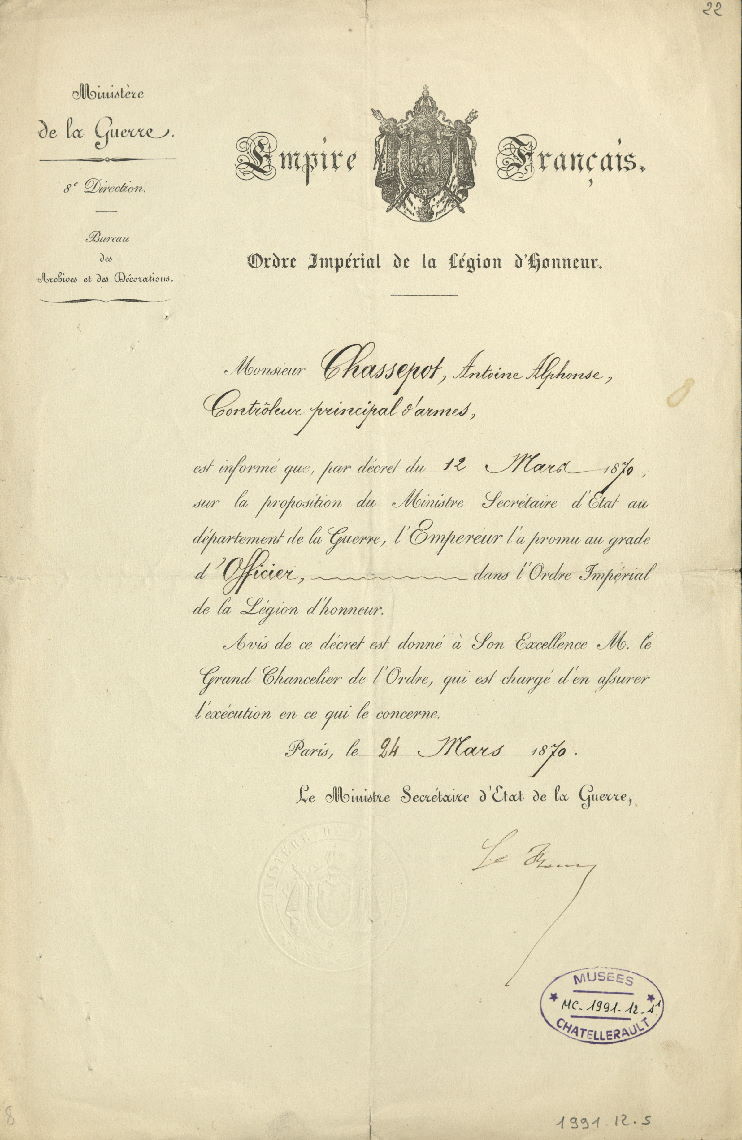 22
Ministère
de la Guerre.
8e Direction.
Bureau
des
Archives et des Décorations.
Empire Français.
Ordre Impérial de la Légion d'Honneur.
Monsieur Chassepot, Antoine Alphonse,
Contrôleur principal d'armes,
est informé que, par décret du 12 Mars 1870,
sur la proposition du Ministre Secrétaire d'État au
département de la Guerre, l'Empereur l'a promu au grade
d'Officier, dans l'Ordre Impérial
de la Légion d'honneur.
Avis de ce décret est donné à Son Excellence M. le
Grand Chancelier de l'Ordre, qui est chargé d'en assurer
l'exécution en ce qui le concerne.
Paris, le 24 Mars 1870.
Le Ministre Secrétaire d'État de la Guerre,
Le
MUSEES
MC-1991-12-
CHATELLERAULT
8
1991.12.5